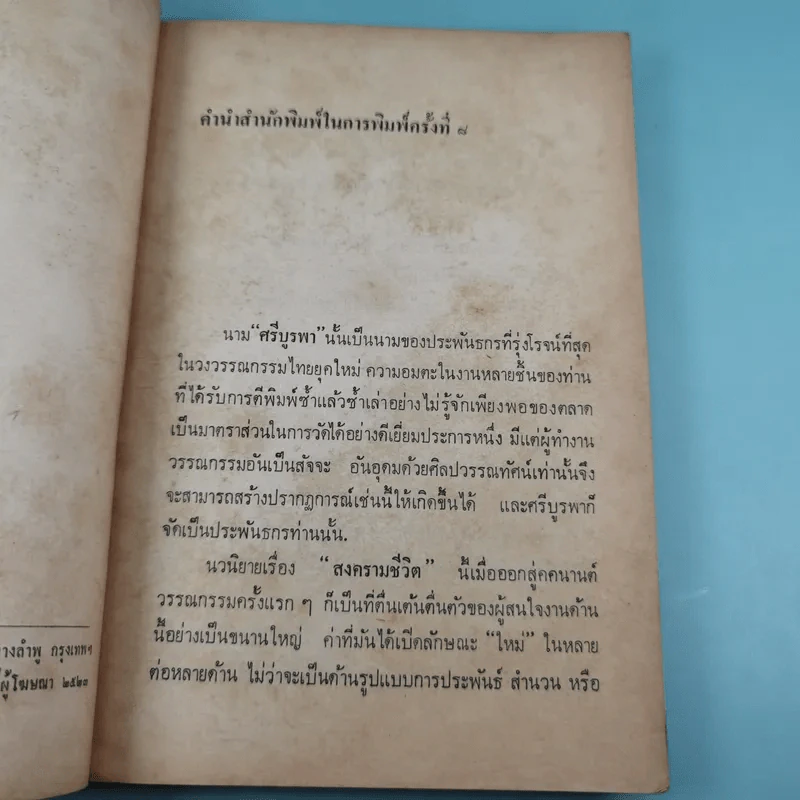 คำนำสำนักพิมพ์ในการพิมพ์ครั้งที่ ๘
นาม“ศรีบูรพา”นั้นเป็นนามของประพันธกรที่รุ่งโรจน์ที่สุด
ในวงวรรณกรรมไทยยุคใหม่ ความอมตะในงานหลายชิ้นของท่าน
ที่ได้รับการตีพิมพ์ซ้ำแล้วซ้ำเล่าอย่างไม่รู้จักเพียงพอของตลาด
เป็นมาตราส่วนในการวัดได้อย่างดีเยี่ยมประการหนึ่ง มีแต่ผู้ทำงาน
วรรณกรรมอันเป็นสัจจะ อันอุดมด้วยศิลปวรรณทัศน์เท่านั้นจึง
จะสามารถสร้างปรากฏการณ์เช่นนี้ให้เกิดขึ้นได้ และศรีบูรพาก็
จัดเป็นประพันธกรท่านนั้น.
นวนิยายเรื่อง “สงครามชีวิต” นี้เมื่อออกสู่คคนานต์
วรรณกรรมครั้งแรก ๆ ก็เป็นที่ตื่นเต้นตื่นตัวของผู้สนใจงานด้าน
นี้อย่างเป็นขนานใหญ่ ค่าที่มันได้เปิดลักษณะ “ใหม่” ในหลาย
ต่อหลายด้าน ไม่ว่าจะเป็นด้านรูปแบบการประพันธ์ สำนวน หรือ
างลำพู กรุงเทพฯ
ผู้โฆษณา ๒๕๒๓